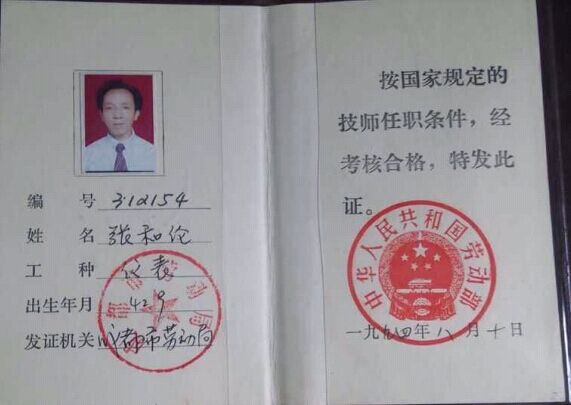 编号 312154
姓名 张和伦
工种 仪表
出生年月 42.9
发证机关 成都市劳动局
按国家规定的
技师任职条件，经
考核合格，特发此
证。
中华人民共和国劳动部
一九九四年八月十日